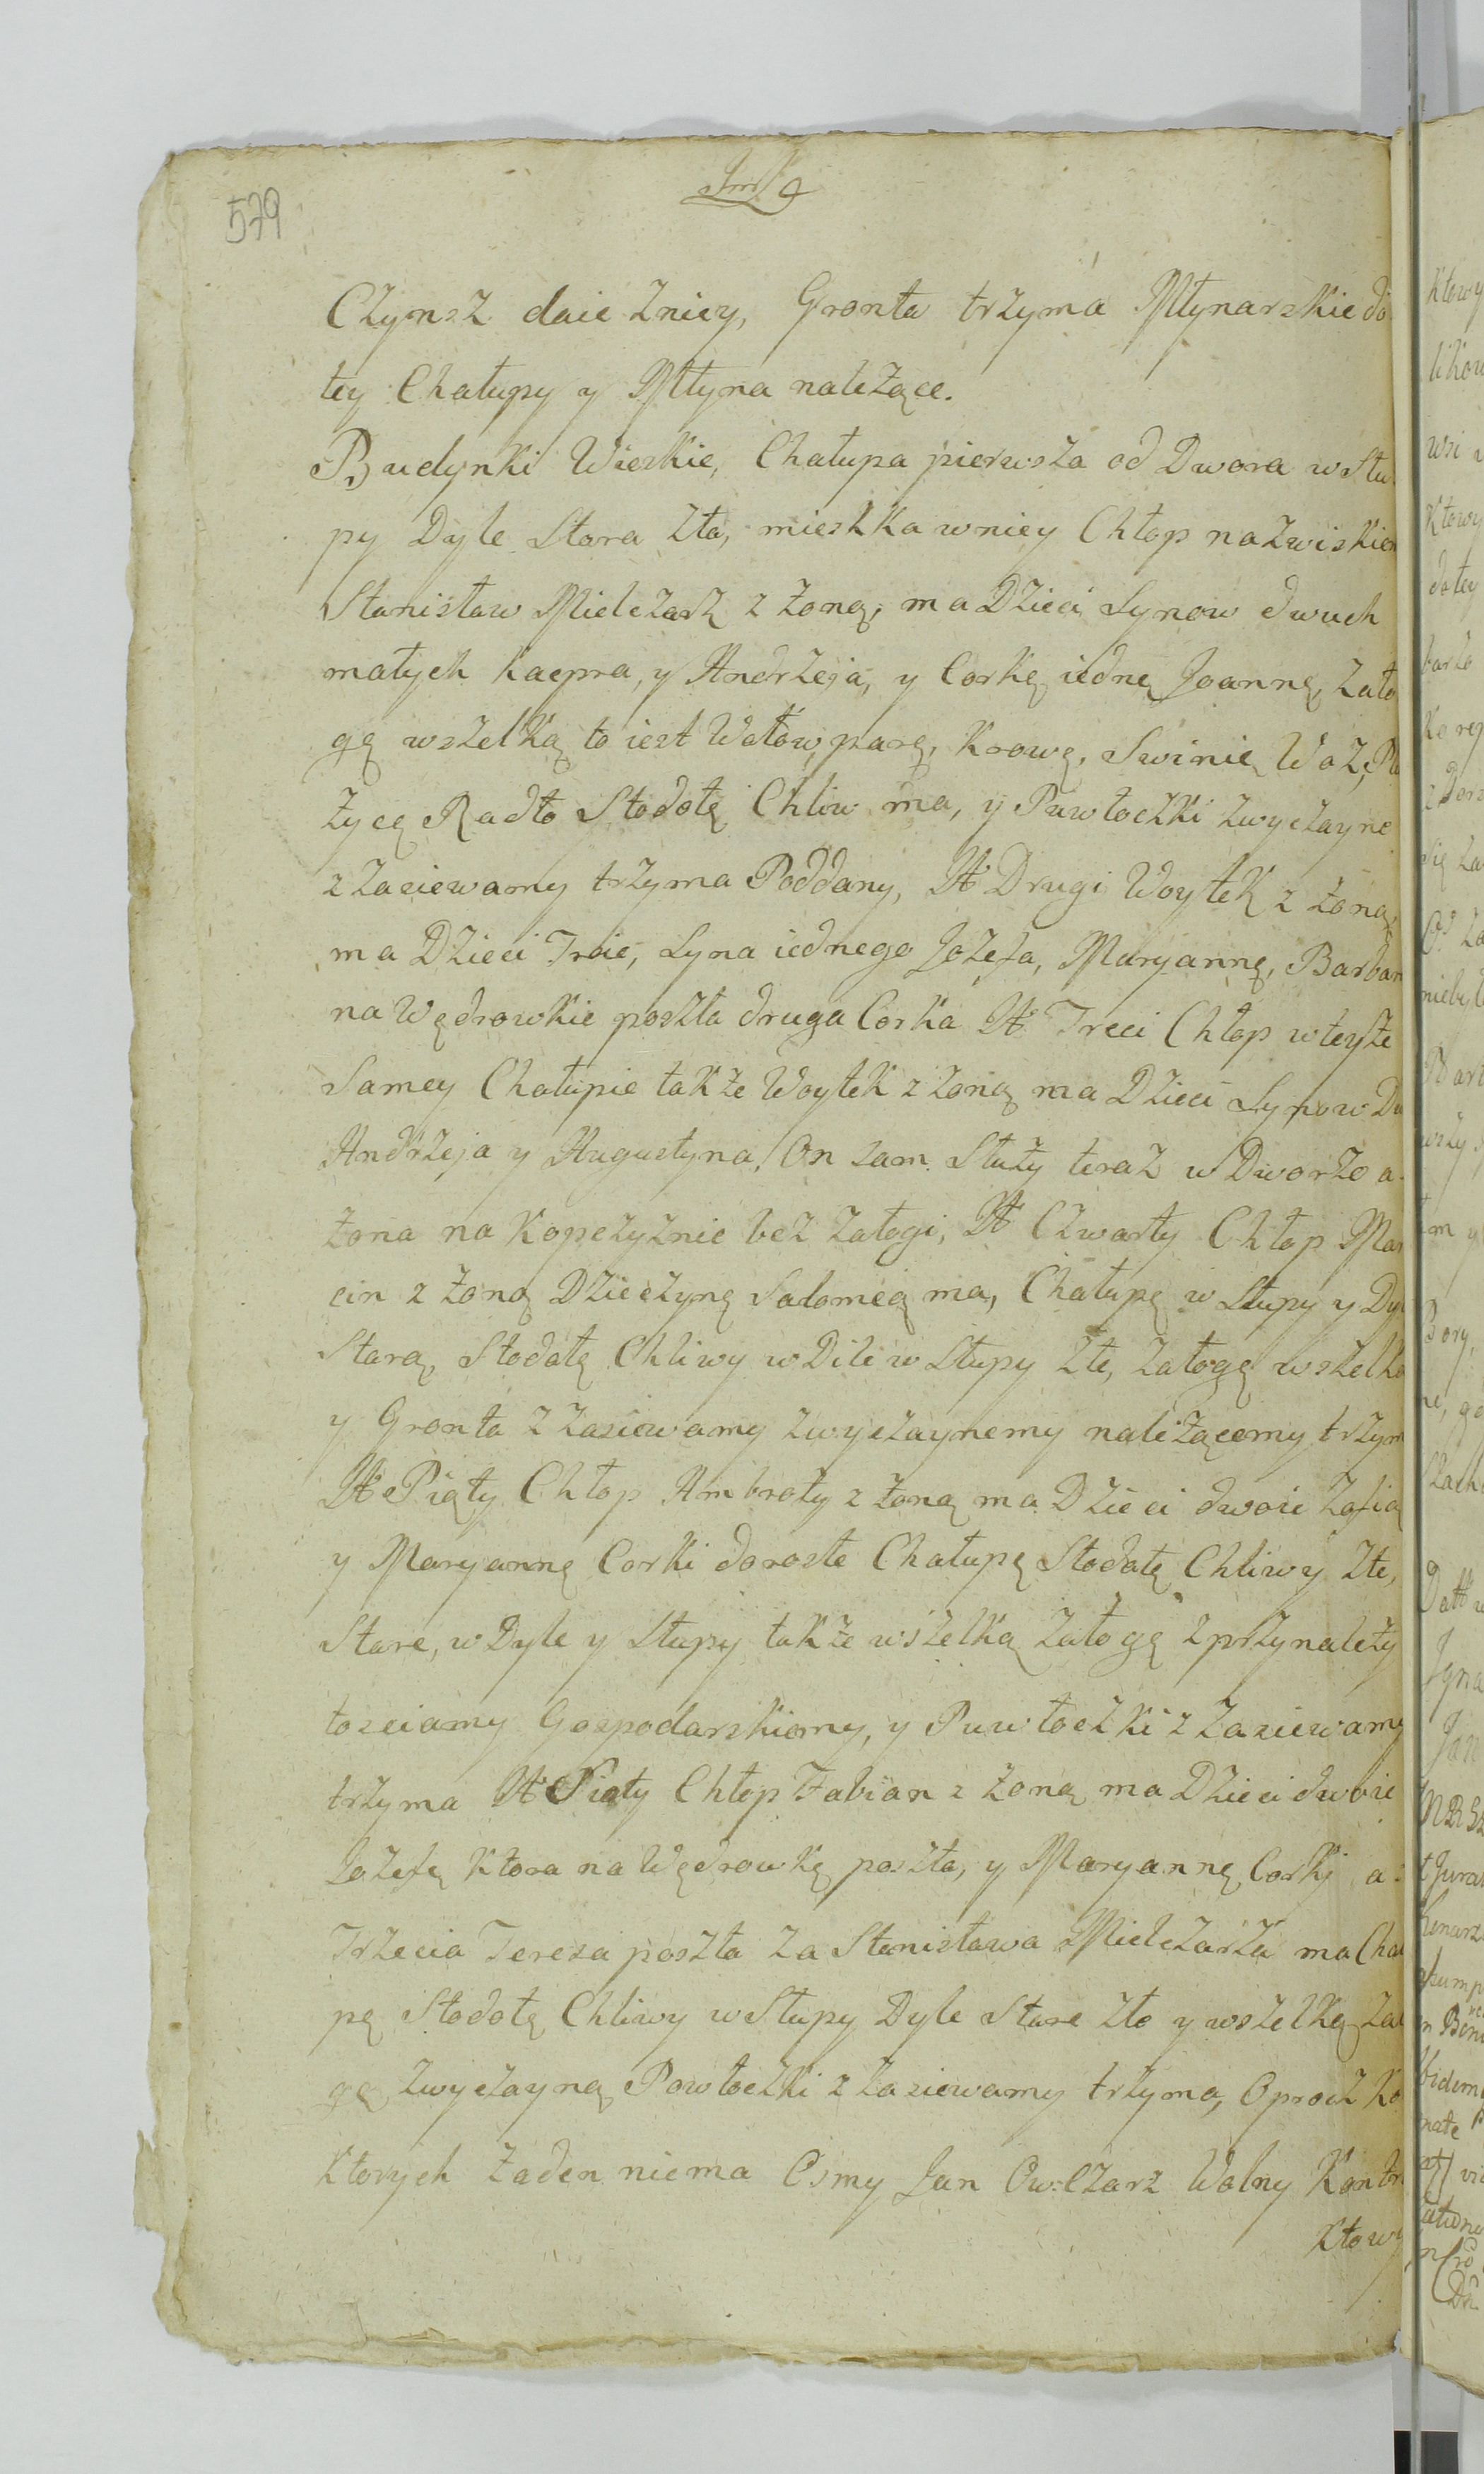 579
Czynsz daie zniey, Gronta trzyma Młynarskie do
tey Chałupy y Młyna należące.
Budynki Wieskie, Chałupa pierwsza od Dwora w Słu
py Dyle Stara zła, mieszka wniey Chłop nazwiskiem
Stanisław Mielczarz z żoną, ma Dzieci Synow dwuch
małych Kacpra, y Andrzeja, y Corkę iednę Joannę, zało
gę wszelką to iest Wołow parę, Krowę, Swinię Woz, Płu
życę Radło Stodołę Chliw ma, y Puwłoczki zwyczayne
z zasiewamy trzyma Poddany, It Drugi Woytek z żoną,
ma Dzieci Troie, Syna iednego Jozefa, Maryannę, Barbar
na Wędrowkie poszła druga Corka It Treci Chłop wteyże
Samey Chałupie także Woytek z żoną ma Dzieci Synow Du
Andrzeja y Augustyna, On sam Służy teraz w Dworze a
żona na Kopczyznie bez załogi, It Czwarty Chłop Mar
cin z żoną Dzieczynę Salomeą ma, Chałupę w Słupy y Dyl
Starą, Stodołę Chliwy w Dile w Słupy złe, załogę wszelką
y Gronta z zasiewamy zwyczaynemy należącemy trzym
It Piąty Chłop Ambroży z żoną ma Dzieci dwoie Zofią
y Maryannę Corki dorosłe Chałupę Stodołę Chliwy złe,
Stare, w Dyle y Słupy także wszelką załogę z przynależy
tosciamy Gospodarskiemy, y Puwłoczki z zasiewamy
trzyma It Piąty Chłop Fabian z żoną ma Dzieci dwoie
Jozefę Ktora na Wędrowkę poszła, y Maryannę Corki a
Trzecia Teresa poszła za Stanisława Mielczarza ma Chału
pę Stodołę Chliwy w Słupy Dyle Stare złe y wszelką zało
gę zwyczayną Powłoczki z zasiewamy trzyma, Oprocz Ko
Ktorych żaden niema Osmy Jan Owczarz Wolny Kontra
Ktowy